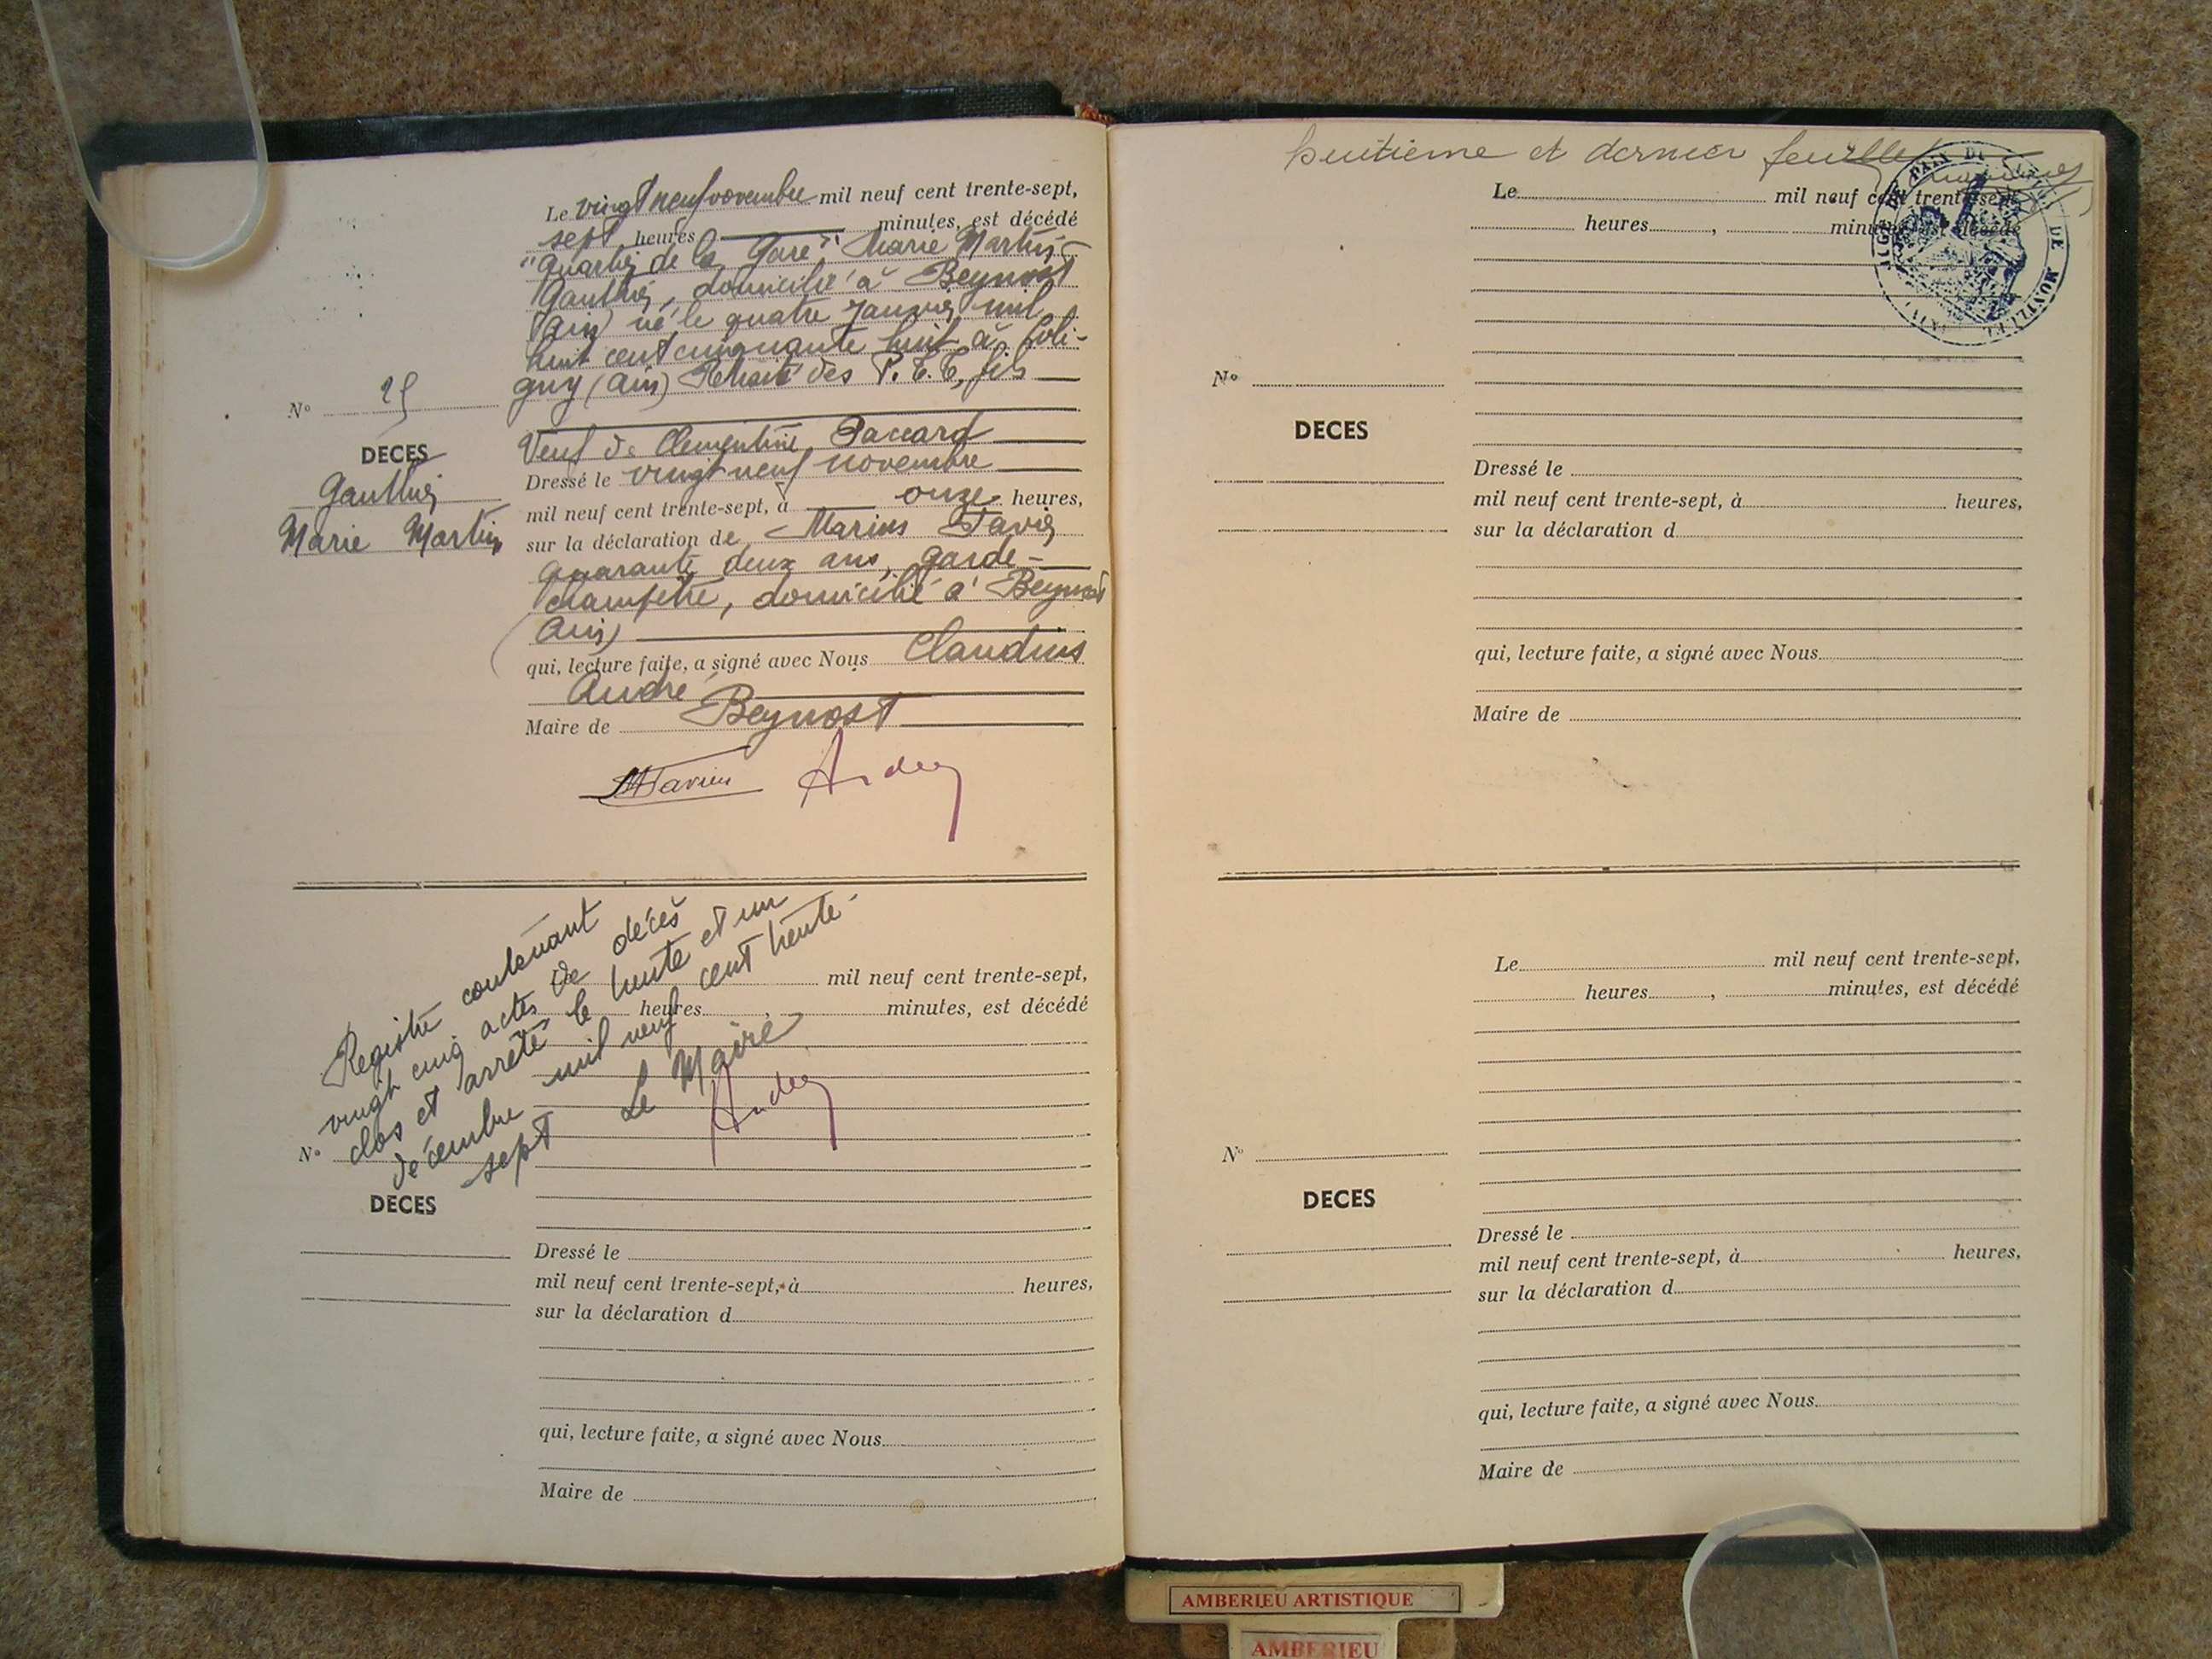 Le vingt neuf novembre mil neuf cent trente-sept,
sept heures minutes, est décédé
"Quartier de la Gare". Marie Martin
Gauthier, domicilié à Beynost
(Ain) né le quatre Janvier mil
huit cent cinquante huit à Coli-
gny (Ain) Retraité des P.T.T, fils
N° 25
DECES
Gauthier
Marie Martin
Veuf de Clementine Paccard
Dressé le vingt neuf novembre
mil neuf cent trente-sept, à onze heures,
sur la déclaration de Marius Tavier
quarante deux ans, garde-
champêtre, domicilié à Beynost
(Ain)
qui, lecture faite, a signé avec Nous Claudius
André
Maire de Beynost
MTavier Andre
Registre contenant
vingt cinq actes de décès
clos et arrêté le trente et un
décembre mil neuf cent trente-
sept Le Maire
Andre
mil neuf cent trente-sept,
heures , minutes, est décédé
N°
DECES
Dressé le
mil neuf cent trente-sept, à heures,
sur la déclaration d
qui, lecture faite, a signé avec Nous
Maire de
huitième et dernier feuillet
Le mil neuf cent trente-sept,
heures , minutes, est décédé
N°
DECES
Dressé le
mil neuf cent trente-sept, à heures,
sur la déclaration d
qui, lecture faite, a signé avec Nous
Maire de
Le mil neuf cent trente-sept,
heures , minutes, est décédé
N°
DECES
Dressé le
mil neuf cent trente-sept, à heures,
sur la déclaration d
qui, lecture faite, a signé avec Nous
Maire de
AMBERIEU ARTISTIQUE
AMBERIEU